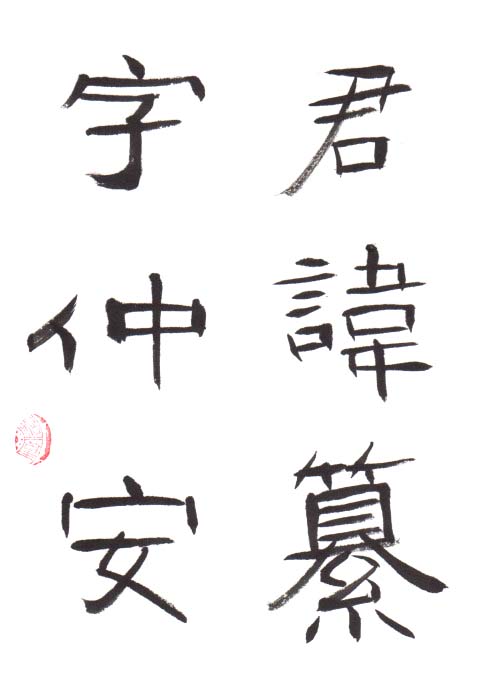 君諱纂
字仲安